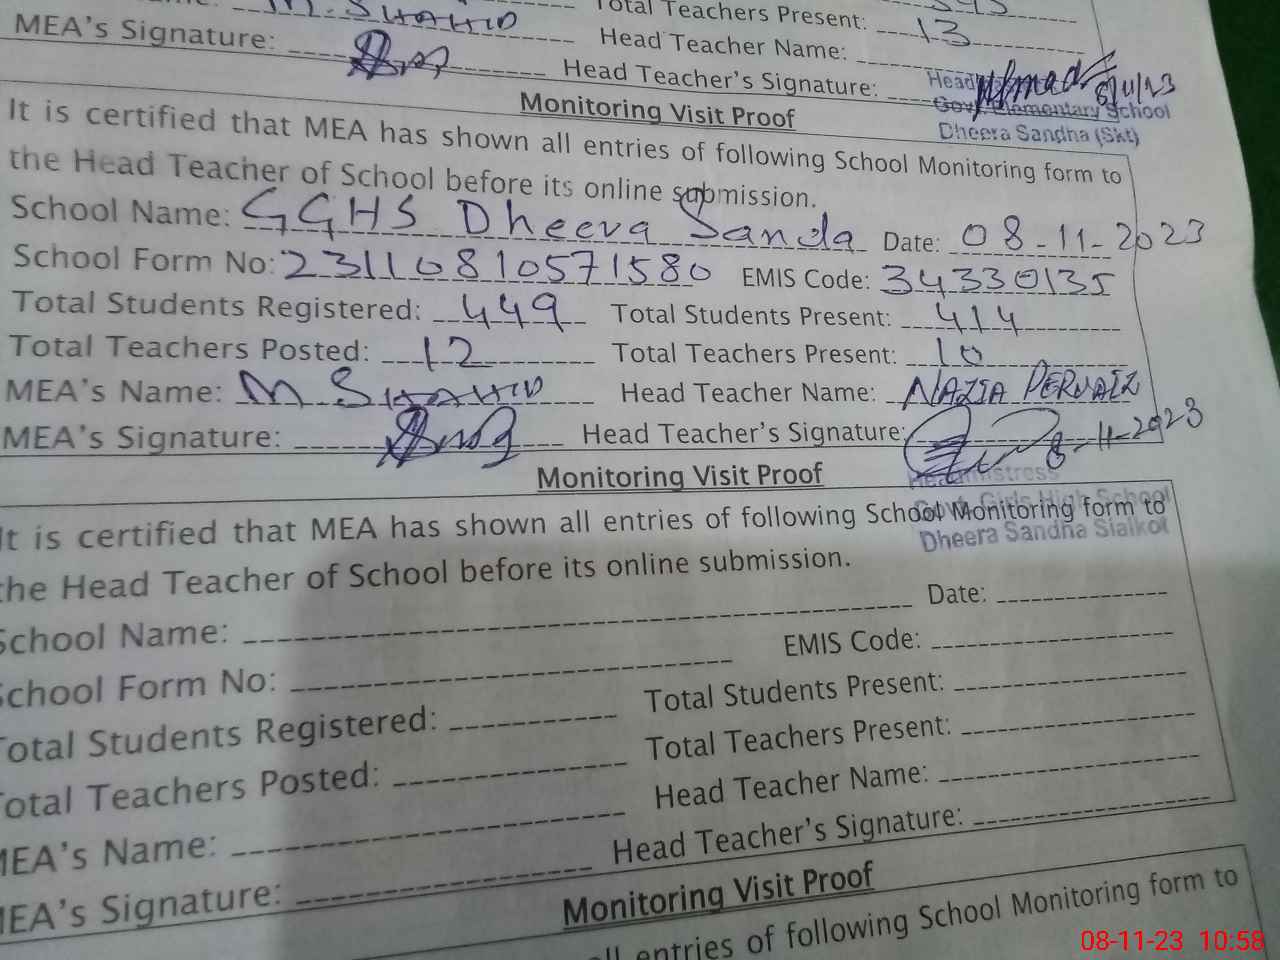 M.SHAHID Total Teachers Present: 13
MEA's Signature: Head Teacher Name:
Head Teacher's Signature: 8/11/23
Head
Govt. Elementary School
Dheera Sandha (Skt)
Monitoring Visit Proof
It is certified that MEA has shown all entries of following School Monitoring form to
the Head Teacher of School before its online submission.
School Name: GGHS Dheera Sanda Date: 08-11-2023
School Form No: 23110810571580 EMIS Code: 34330135
Total Students Registered: 449 Total Students Present: 414
Total Teachers Posted: 12 Total Teachers Present: 10
MEA's Name: M SHAHID Head Teacher Name: NAZIA PERVAIZ
MEA's Signature: Head Teacher's Signature: 8-11-2023
Headmistress
Govt. Girls High School
Dheera Sandha Sialkot
Monitoring Visit Proof
It is certified that MEA has shown all entries of following School Monitoring form to
the Head Teacher of School before its online submission.
School Name: Date:
School Form No: EMIS Code:
Total Students Registered: Total Students Present:
Total Teachers Posted: Total Teachers Present:
MEA's Name: Head Teacher Name:
MEA's Signature: Head Teacher's Signature:
Monitoring Visit Proof
all entries of following School Monitoring form to
08-11-23 10:58